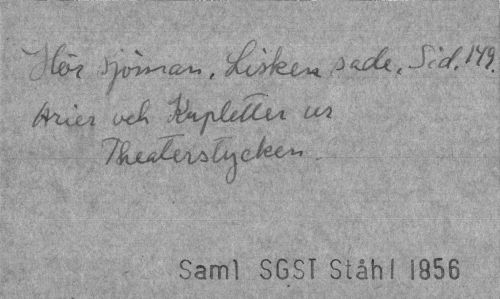 Hör sjöman, Lisken sade, Sid. 149.
Arier och Kupletter ur
Theaterstycken.
Saml SGST Ståhl 1856